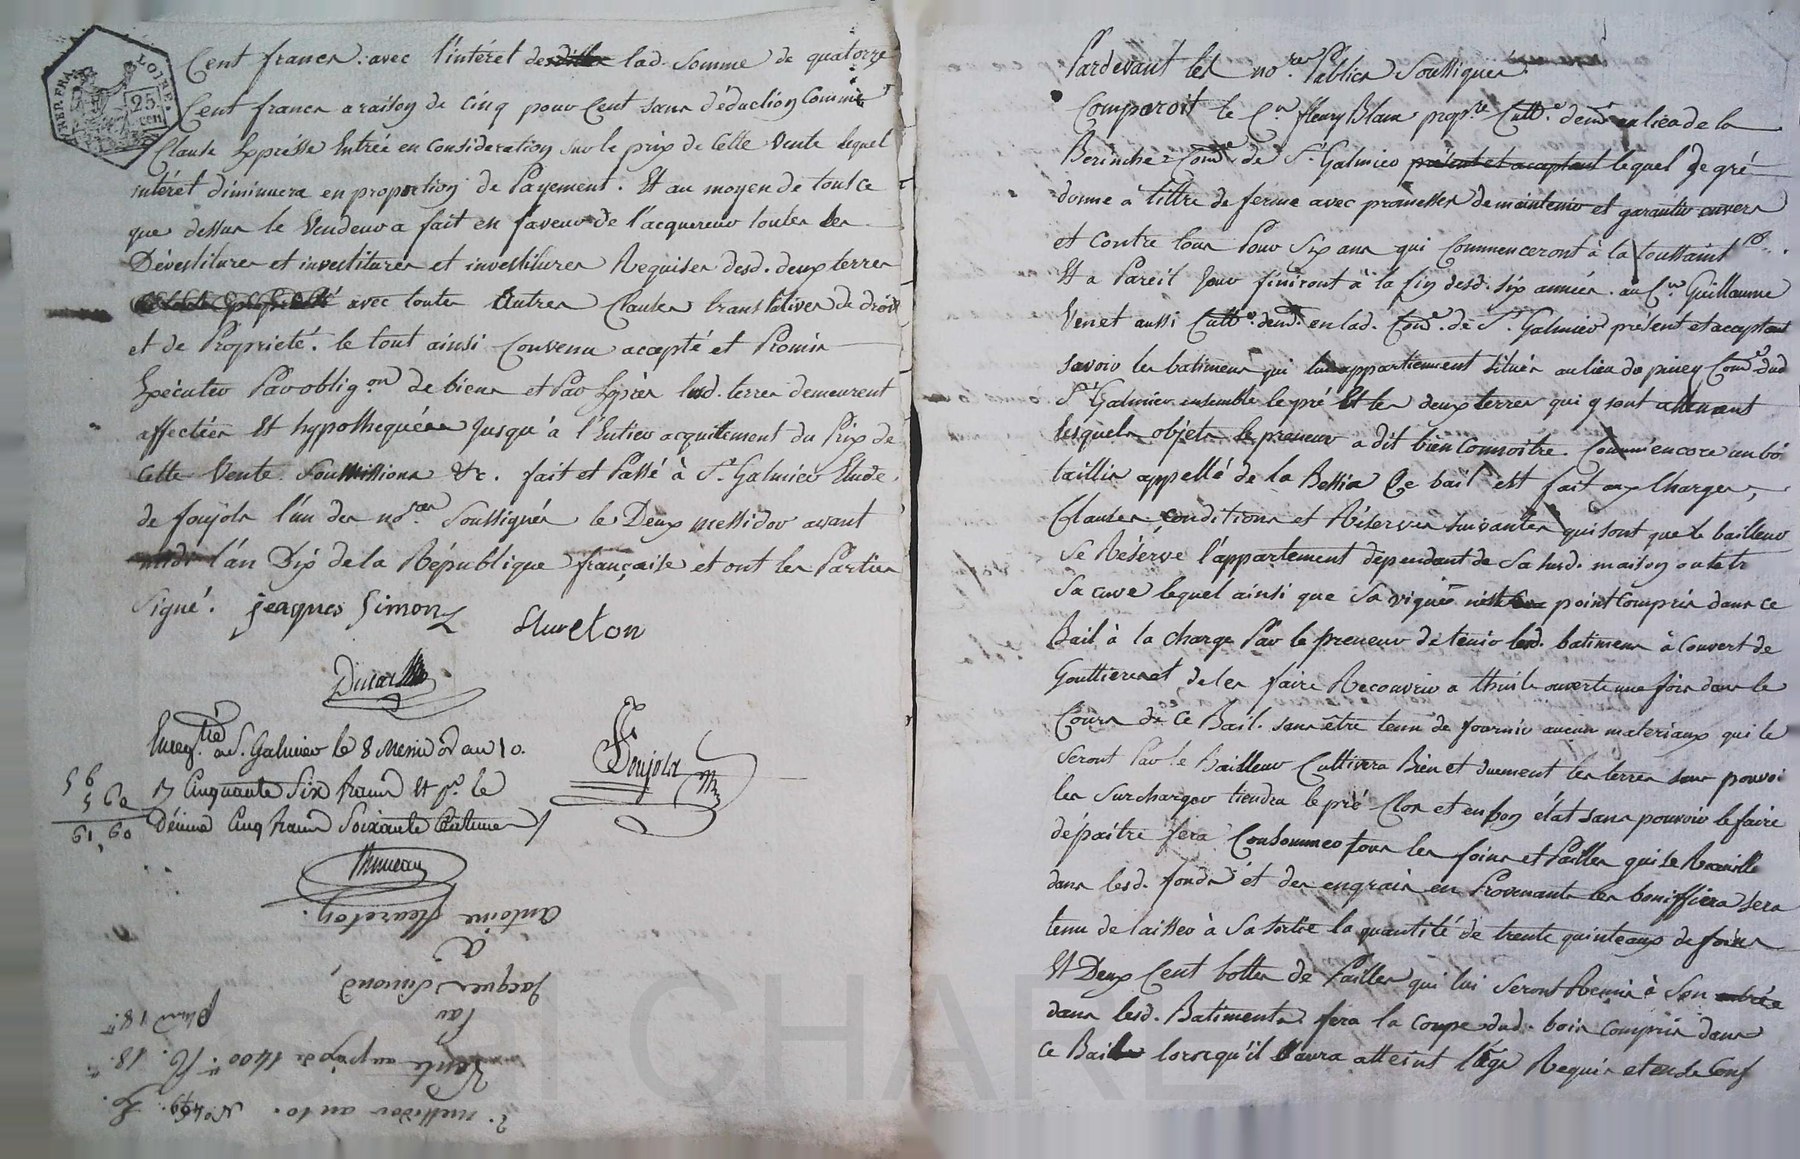 LOIRE.
25.
cen
Cent francs. avec l'intérêt lad. Somme de quatorze
Cent francs a raison de cinq pour Cent sans déduction Comme
Clause Expresse Entrée en Considération sur le prix de Cette Vente lequel
intérêt diminuera en proportion de Payement. Et au moyen de tout ce
que dessus le Vendeur a fait en faveur de l'acquereur toutes les
Dévestitures et investitures et investitures Requises desd. deux terres
avec toutes autres Clauses translatives de droit
et de Propriété. le tout ainsi Convenu accepté et Promis
Exécuter Par oblig.on de biens et Par Exprès lesd. terres demeurent
affectées Et hypothequées Jusqu'à l'Entier acquitement du Prix de
Cette Vente. Soumissions &c. fait et Passé à St. Galmier Etude
de foujols l'un des no.res Soussignés le Deux messidor avant
midi l'an Dix de la République française et ont les Parties
Signé. jeaques Simon
fleureton
Foujols
Enreg.tré a St. Galmier le 8 Messidor an 10.
R/ Cinquante Six francs Et pr. le
Décime Cinq francs Soixante Centimes
56
5 60
61, 60
antoine fleureton.
à
Jacques Simond,
Par
Vente au prix de 1400.
2. messidor an 10. No. 469.
Pardevant les no.res Publics Soussignés
Comparoit le C.en fleury Blanc prop.re Cult.r dem.t au lieu de la
Berinche Com.e de St. Galmier présent et acceptant lequel de gré
donne à tittre de ferme avec promesses de maintenir et garantir envers
et Contre tous Pour Six ans qui Commenceront à la toussaint
Et a Pareil Jour finiront à la fin desd. six années. au C.en Guillaume
Venet aussi Cult.r dem.t en lad. Com.e de St. Galmier présent et acceptant
savoir les batimens qui lui appartiennent situés au lieu de pincy Com.e dud
St. Galmier ensemble le pré Et les deux terres qui y sont attenant
lesquels objets le preneur a dit bien Connoitre. Comme encore un bois
taillis appellé de la Bessia Ce bail est fait aux Charges,
Clauses, Conditions et Réserves suivantes qui sont que le bailleur
Se Réserve l'appartement dépendant de Sa susd. maison ou est
Sa cuve lequel ainsi que Sa vigne point Compris dans ce
Bail à la charge Par le preneur de tenir lesd. batimens à Couvert de
Gouttieres et de les faire Recouvrir a thuile ouverte une fois dans le
Cours de Ce Bail. sans être tenu de fournir aucun materiaux qui le
Seront Par le Bailleur Cultivera Bien et duement les terres sans pouvoir
les Surcharger tiendra le pré Clos et en bon état sans pouvoir le faire
dépaitre fera Consommer tous les foins et Pailles qui se Recueille
dans lesd. fonds et des engrais en Provenants les boniffiera sera
tenu de laisser à Sa Sortie la quantité de trente quinteaux de foins
Et Deux Cent bottes de Pailles qui lui Seront Remis à Son entrée
dans lesd. Batiments. fera la coupe dud. bois compris dans
Ce Bail lorsqu'il aura atteint l'âge Requis et en se Conf
CHAR